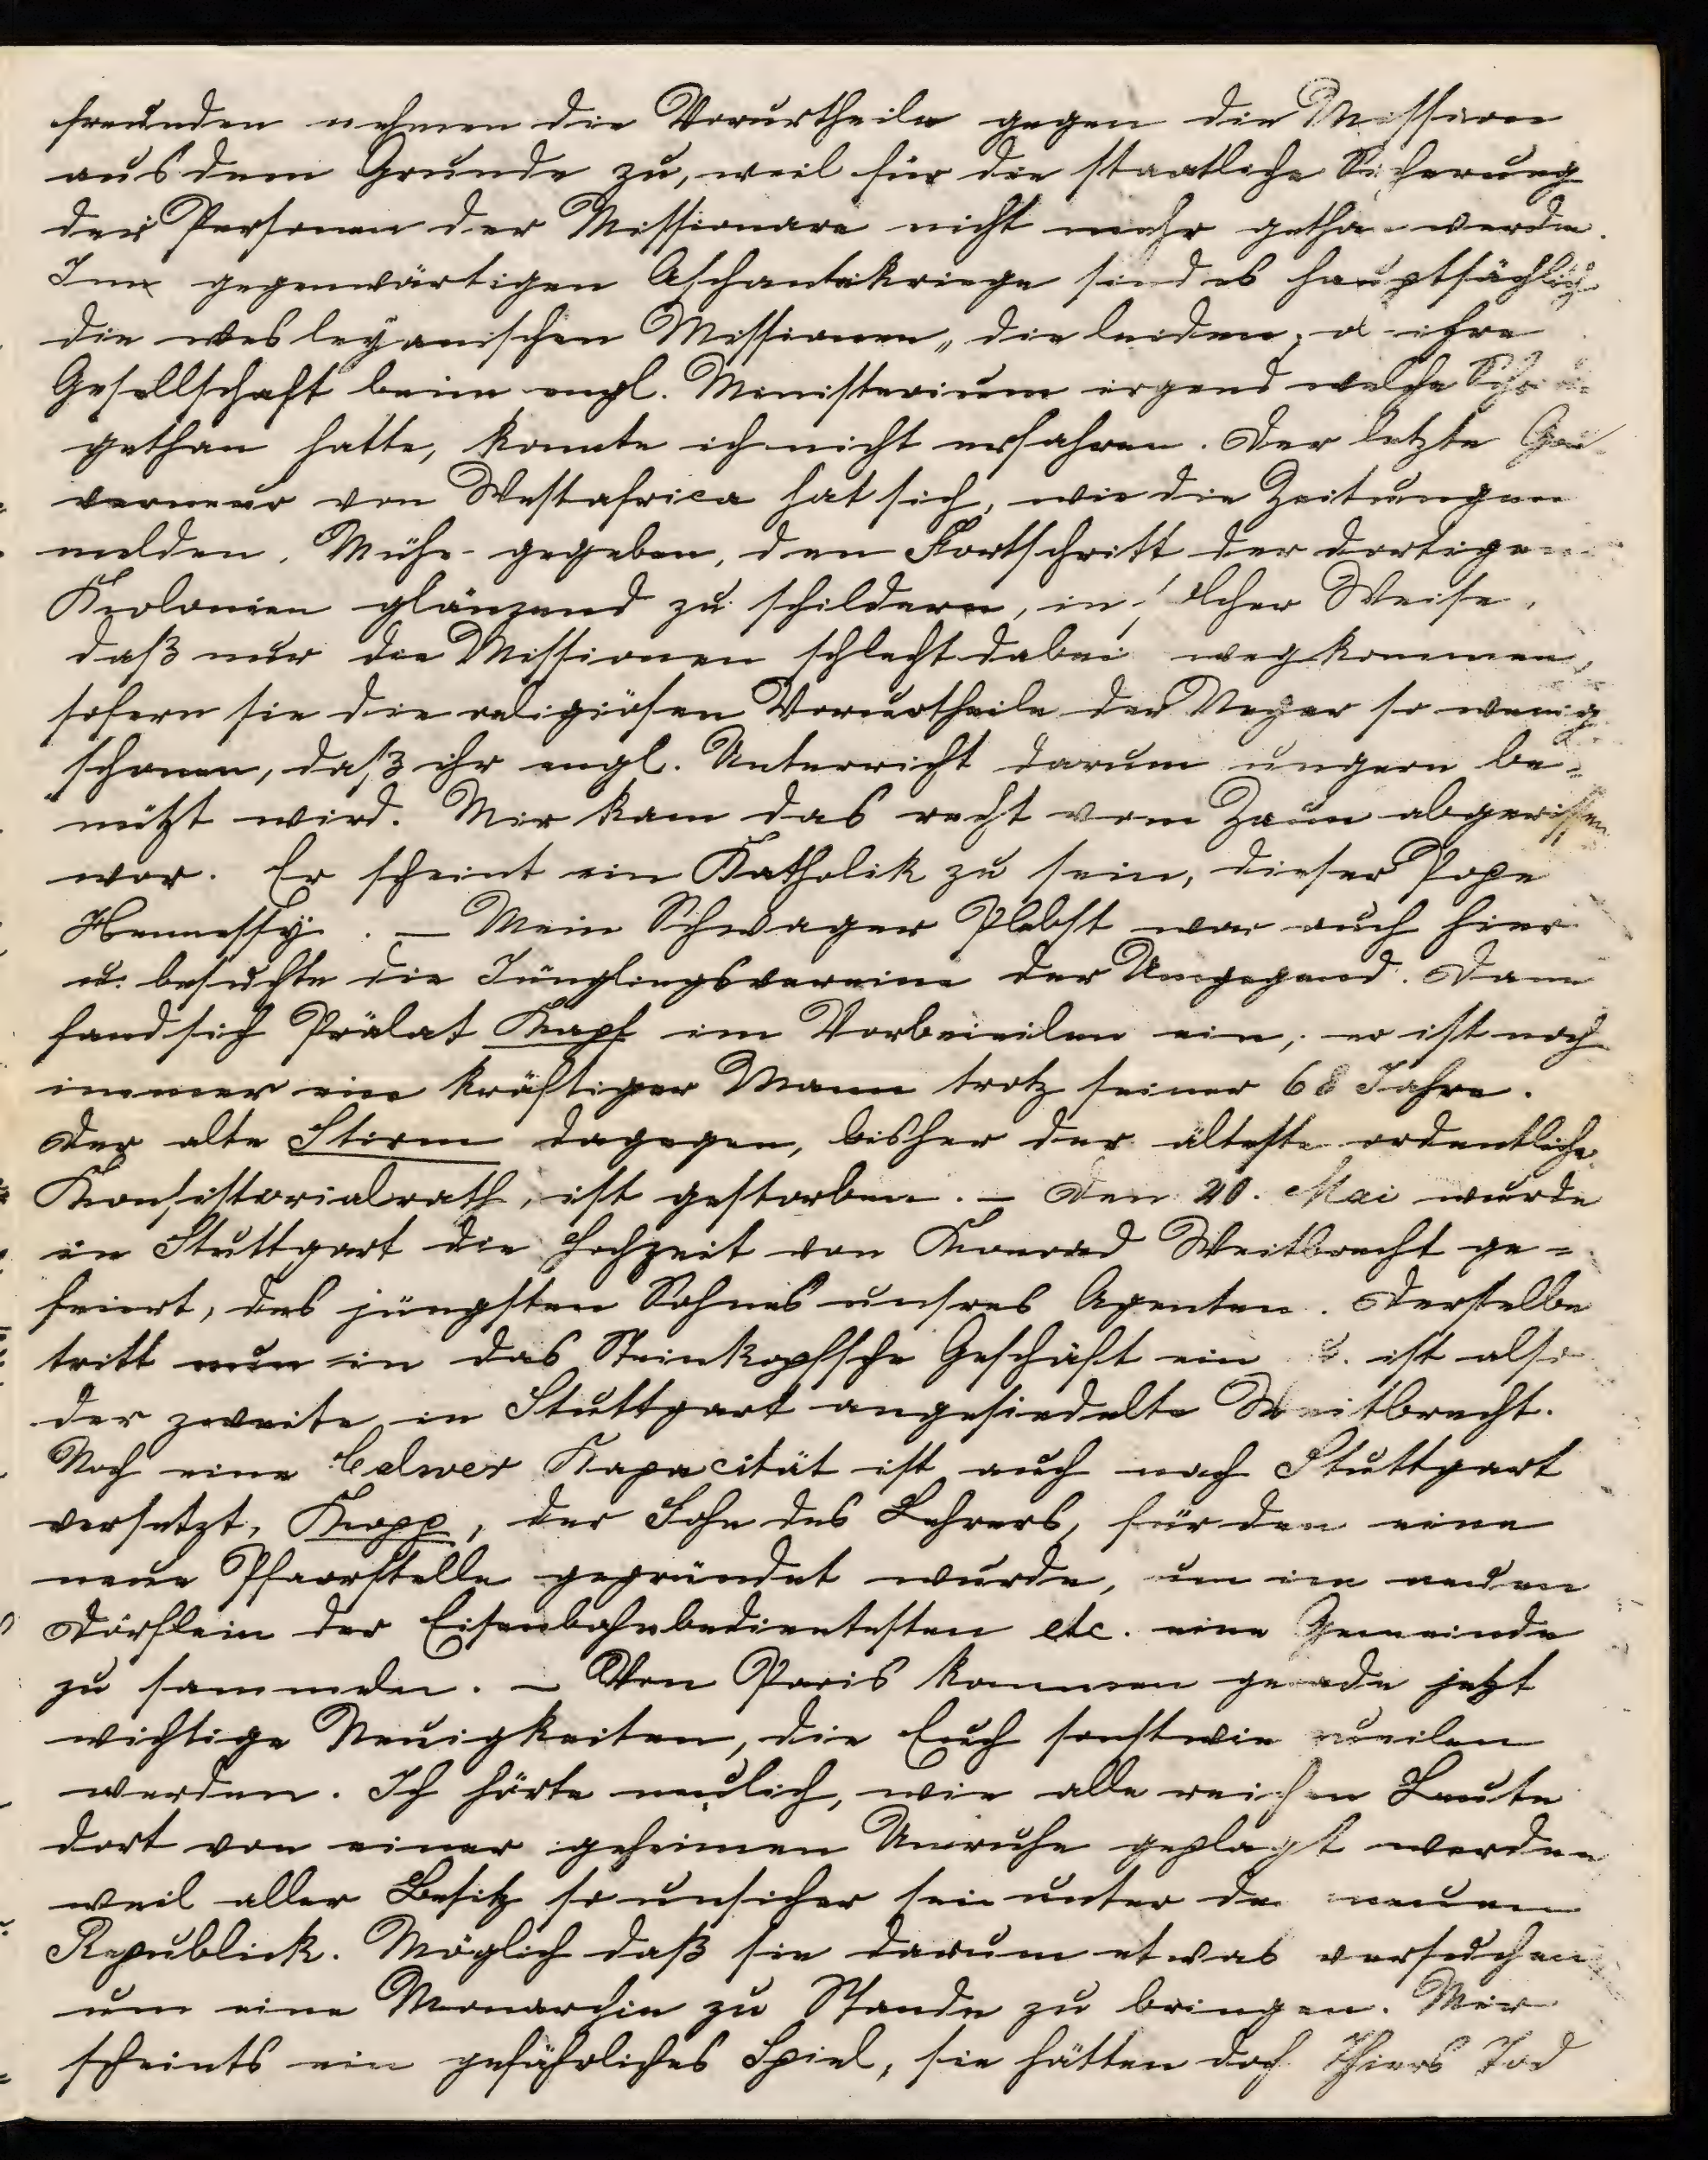 freunden nehmen die Vorurtheile gegen die Mission
aus dem Grunde zu, weil für die staatliche Sicherung
der Personen der Missionare nicht mehr gethan werde.
Im gegenwärtigen Aschantekriege sind es hauptsächlich
die wesleyanischen Missionen, die leiden; ob ihre
Gesellschaft beim engl. Ministerium irgend welche
gethan hatte, konnte ich nicht erfahren. Der letzte Gou-
verneur von Westafrica hat sich, wie die Zeitungen
melden, Mühe gegeben, den Fortschritt der dortigen
Kolonien glänzend zu schildern, in solcher Weise,
daß nur die Missionen schlecht dabei wegkommen,
sofern sie die religiösen Vorurtheile der Neger so wenig
schonen, daß ihr engl. Unterricht darum ungern be-
nützt wird. Mir kam das recht vom Zaun abgerissen
vor. Er scheint ein Katholik zu sein, dieser Pope
Hennessy. – Mein Schwager Plebst war auch hier
u. besuchte die Jünglingsvereine der Umgegend. Dann
fand sich Prälat Kapf im Vorbeieilen ein; er ist noch
immer ein kräftiger Mann trotz seiner 68 Jahre.
Der alte Stirm dagegen, bisher der älteste ordentliche
Konsistorialrath, ist gestorben. – Den 20. Mai wurde
in Stuttgart die Hochzeit von Konrad Weitbrecht ge-
feiert, des jüngsten Sohnes unsres Agenten. Derselbe
tritt nun in das Steinkopfsche Geschäft ein u. ist also
der zweite in Stuttgart angesiedelte Weitbrecht.
Noch eine Calwer Kapacität ist auch nach Stuttgart
versetzt, Kopp, der Sohn des Lehrers, für den eine
neue Pfarrstelle gegründet wurde, um im neuen
Dörflein der Eisenbahnbediensteten etc. eine Gemeinde
zu sammeln. – Von Paris kommen gerade jetzt
wichtige Neuigkeiten, die Euch sonstwie zueilen
werden. Ich hörte neulich, wie alle reichen Leute
dort von einer geheimen Unruhe geplagt werden
weil aller Besitz so unsicher sei unter der neuen
Republick. Möglich daß sie darum etwas versuchen
um eine Monarchie zu Stande zu bringen. Mir
scheints ein gefährliches Spiel, sie hätten doch Thiers Tod